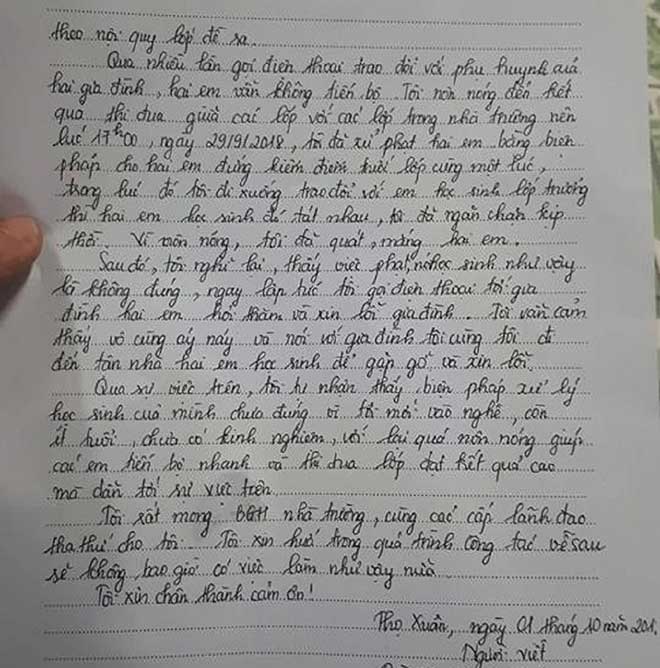 theo nội quy lớp đề ra.
Qua nhiều lần gọi điện thoại trao đổi với phụ huynh của
hai gia đình, hai em vẫn không tiến bộ. Tôi nôn nóng đến kết
quả thi đua giữa các lớp với các lớp trong nhà trường nên
lúc 17h00, ngày 29/9/2018, tôi đã xử phạt hai em bằng biện
pháp cho hai em đứng kiểm điểm dưới lớp cùng một lúc,
trong lúc đó tôi đi xuống trao đổi với em học sinh lớp trưởng
thì hai em học sinh đó tát nhau, tôi đã ngăn chặn kịp
thời. Vì nôn nóng, tôi đã quát, mắng hai em.
Sau đó, tôi nghĩ lại, thấy việc phạt học sinh như vậy
là không đúng, ngay lập tức tôi gọi điện thoại tới gia
đình hai em hỏi thăm và xin lỗi gia đình. Tôi vẫn cảm
thấy vô cùng áy náy và nói với gia đình tôi cùng tôi đi
đến tận nhà hai em học sinh để gặp gỡ và xin lỗi.
Qua sự việc trên, tôi tự nhận thấy biện pháp xử lý
học sinh của mình chưa đúng vì tôi mới vào nghề, còn
ít tuổi, chưa có kinh nghiệm, với lại quá nôn nóng giúp
các em tiến bộ nhanh và thi đua lớp đạt kết quả cao
mà dẫn tới sự việc trên.
Tôi rất mong BGH nhà trường, cùng các cấp lãnh đạo
tha thứ cho tôi. Tôi xin hứa trong quá trình công tác về sau
sẽ không bao giờ có việc làm như vậy nữa.
Tôi xin chân thành cảm ơn!
Thọ Xuân, ngày 01 tháng 10 năm 201
Người viết